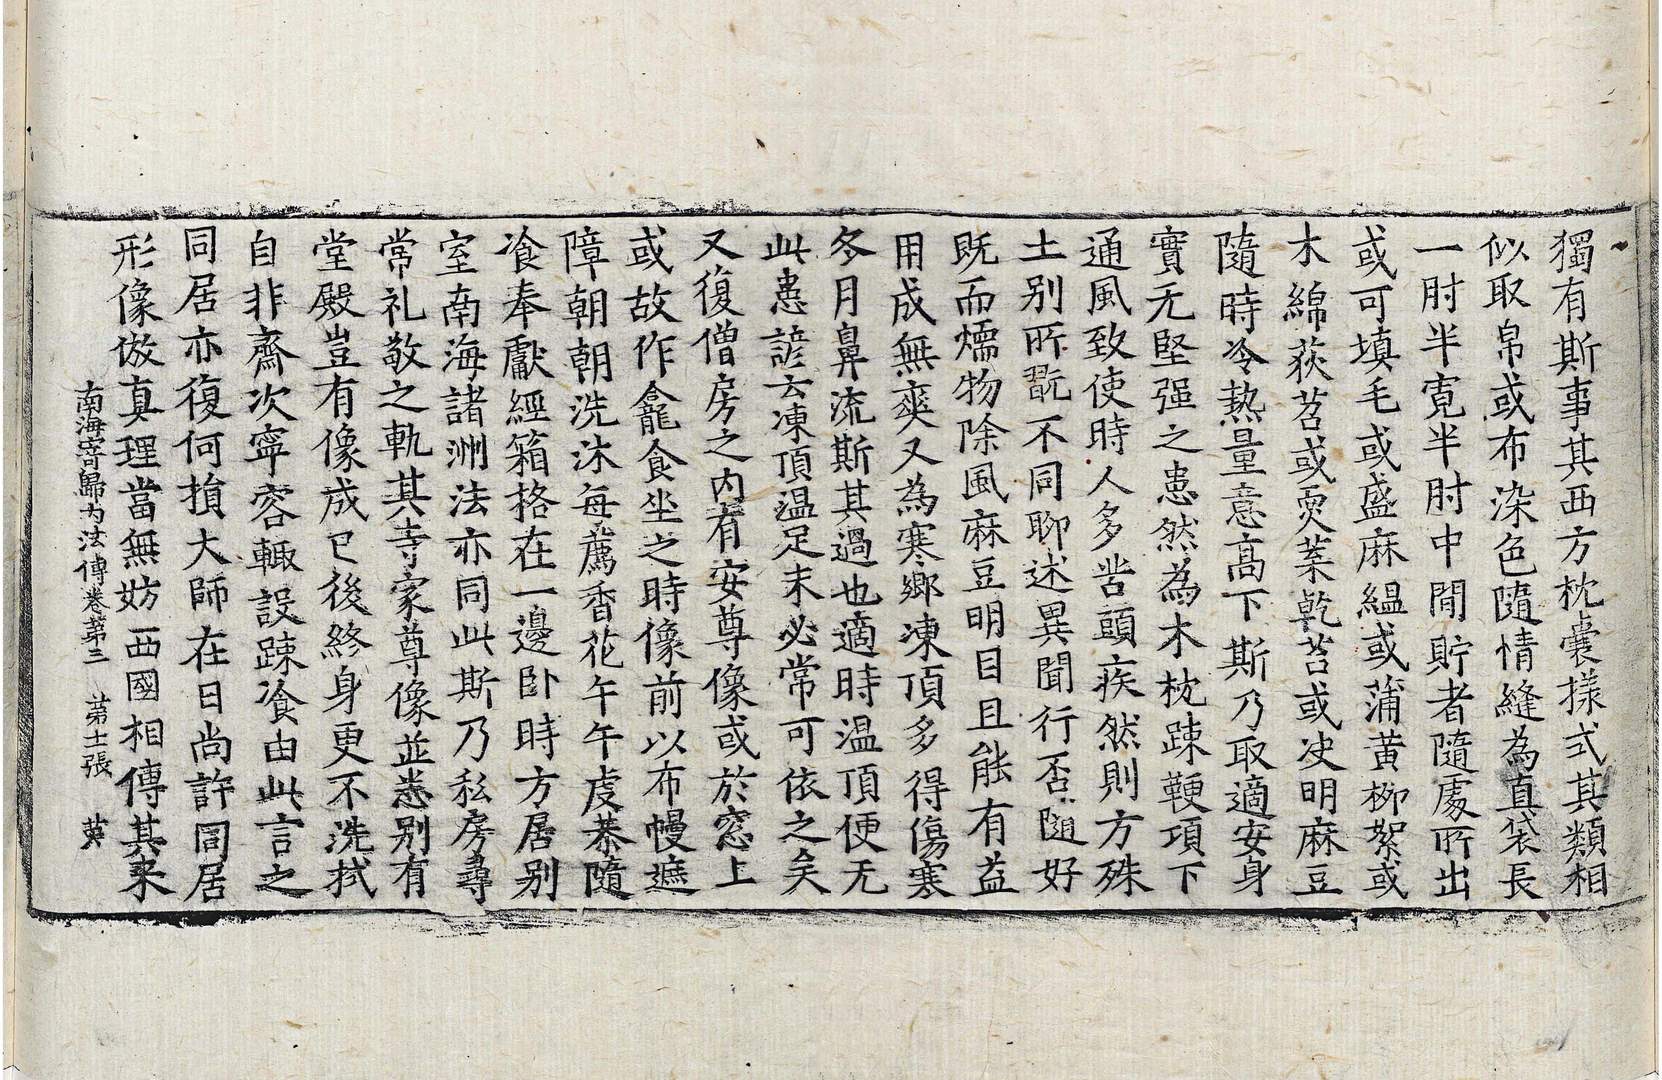 獨有斯事其西方枕囊㨾式其類相
似取帛或布染色隨情縫為直袋長
一肘半寬半肘中間貯者隨處所出
或可填毛或盛麻縕或蒲黃柳絮或
木綿荻苕或耎葉乾苔或决明麻豆
隨時冷熱量意高下斯乃取適安身
實无堅强之患然為木枕踈鞕項下
通風致使時人多苦頭疾然則方殊
土别所翫不同聊述異聞行否隨好
既而燸物除風麻豆明目且能有益
用成無爽又為寒鄉凍頂多得傷寒
冬月鼻流斯其過也適時温頂便无
此患諺云凍頂温足未必常可依之矣
又復僧房之內有安尊像或於窓上
或故作龕食坐之時像前以布幔遮
障朝朝洗沐每薦香花午午虔恭隨
飡奉獻經箱格在一邊卧時方居别
室南海諸洲法亦同此斯乃私房尋
常礼敬之軌其寺家尊像並悉别有
堂殿豈有像成已後終身更不洗拭
自非齋次寧容輙設踈飡由此言之
同居亦復何損大師在日尚許同居
形像倣真理當無妨西國相傳其来
南海寄歸内法傳卷第三　第十一張　英